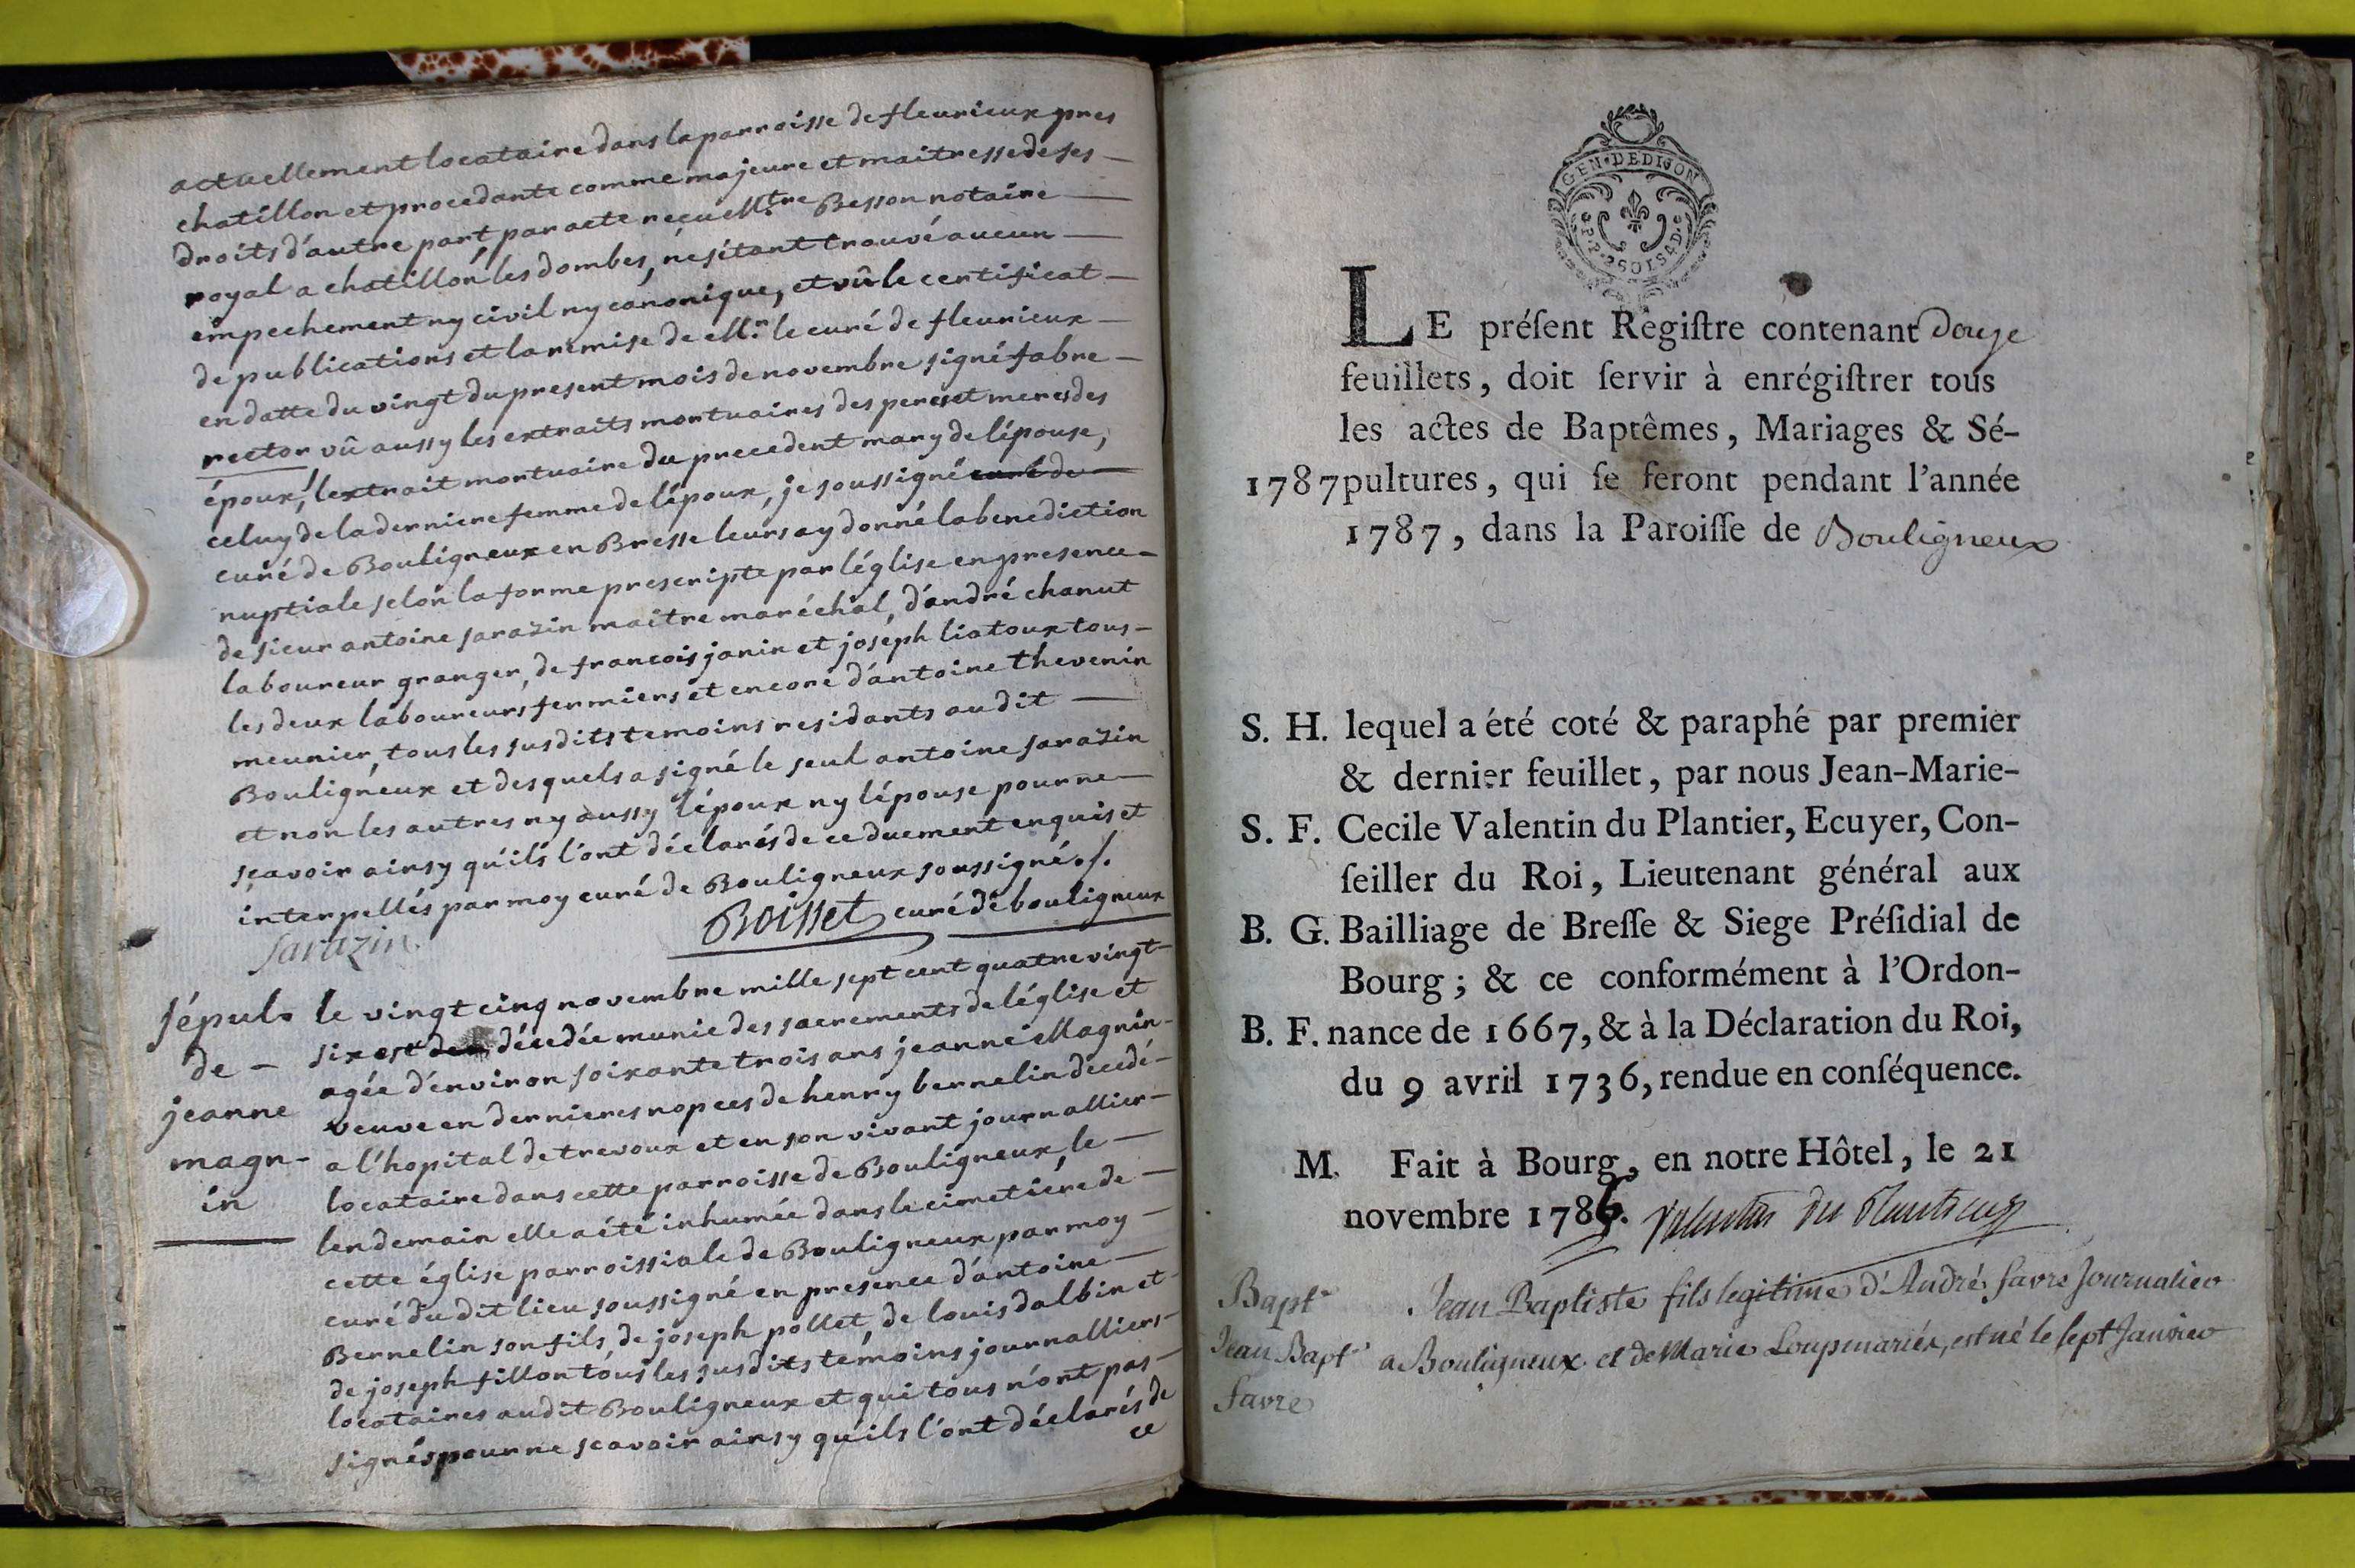 actuellement locataire dans la parroisse de fleurieux pres
chatillon et procedante comme majeure et maitresse de ses
droits d'autre part par acte reçu M.tre Besson notaire
royal a chatillon les dombes, ne s'étant trouvé aucun
empechement ny civil ny canonique, et vû le certificat
de publications et la remise de M.r le curé de fleurieux
en datte du vingt du present mois de novembre signé fabre
rector vû aussy les extraits mortuaires des peres et meres des
époux, l'extrait mortuaire du precedent mary de l'épouse,
celuy de la derniere femme de l'époux, je soussigné curé de
curé de Bouligneux en Bresse leurs ay donné la benediction
nuptiale selon la forme prescripte par l'église en presence
de sieur antoine sarazin maitre maréchal, d'andré chanut
laboureur granger, de francois janin et joseph liatoux tous
les deux laboureurs fermiers et encore d'antoine thevenin
meunier, tous les susdits temoins residants au dit
Bouligneux et desquels a signé le seul antoine sarazin
et non les autres ny aussy l'époux ny l'épouse pour ne
sçavoir ainsy qu'ils l'ont déclarés de ce duement enquis et
interpellés par moy curé de Bouligneux soussigné ./.
Boisset curé de bouligneux
Sarazin
sépul.
de
jeanne
magn-
in
le vingt cinq novembre mille sept cent quatre vingt
six est décedée munie des sacrements de l'église et
agée d'environ soixante trois ans jeanne Magnin
veuve en dernieres nopces de henry bernelin decedé
a l'hopital de trevoux et en son vivant journallier
locataire dans cette parroisse de Bouligneux, le
lendemain elle a été inhumée dans le cimetiere de
cette église parroissiale de Bouligneux par moy
curé du dit lieu soussigné en presence d'antoine
Bernelin son fils, de joseph pollet, de louis dalbin et
de joseph fillon tous les susdits témoins journalliers
locataires au dit Bouligneux et qui tous n'ont pas
signés pour ne scavoir ainsy qu'ils l'ont déclarés de
ce
GEN. DE DIJON
2 SOLS 4 D.
LE préſent Régiſtre contenant douze
feuillets, doit ſervir à enrégiſtrer tous
les actes de Baptêmes, Mariages & Sé-
1787 pultures, qui ſe feront pendant l'année
1787, dans la Paroiſſe de Bouligneux
S. H. lequel a été coté & paraphé par premier
& dernier feuillet, par nous Jean-Marie-
S. F. Cecile Valentin du Plantier, Ecuyer, Con-
ſeiller du Roi, Lieutenant général aux
B. G. Bailliage de Breſſe & Siege Préſidial de
Bourg ; & ce conformément à l'Ordon-
B. F. nance de 1667, & à la Déclaration du Roi,
du 9 avril 1736, rendue en conſéquence.
M. Fait à Bourg, en notre Hôtel, le 21
novembre 1786. Valentin du Plantier
Bapt.
Jean Bapt.
favre
Jean Baptiste fils legitime d'André favre Journalier
a Bouligneux et de Marie Loup mariés, est né le sept Janvier